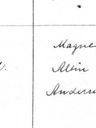 Magne
Albin
Anders